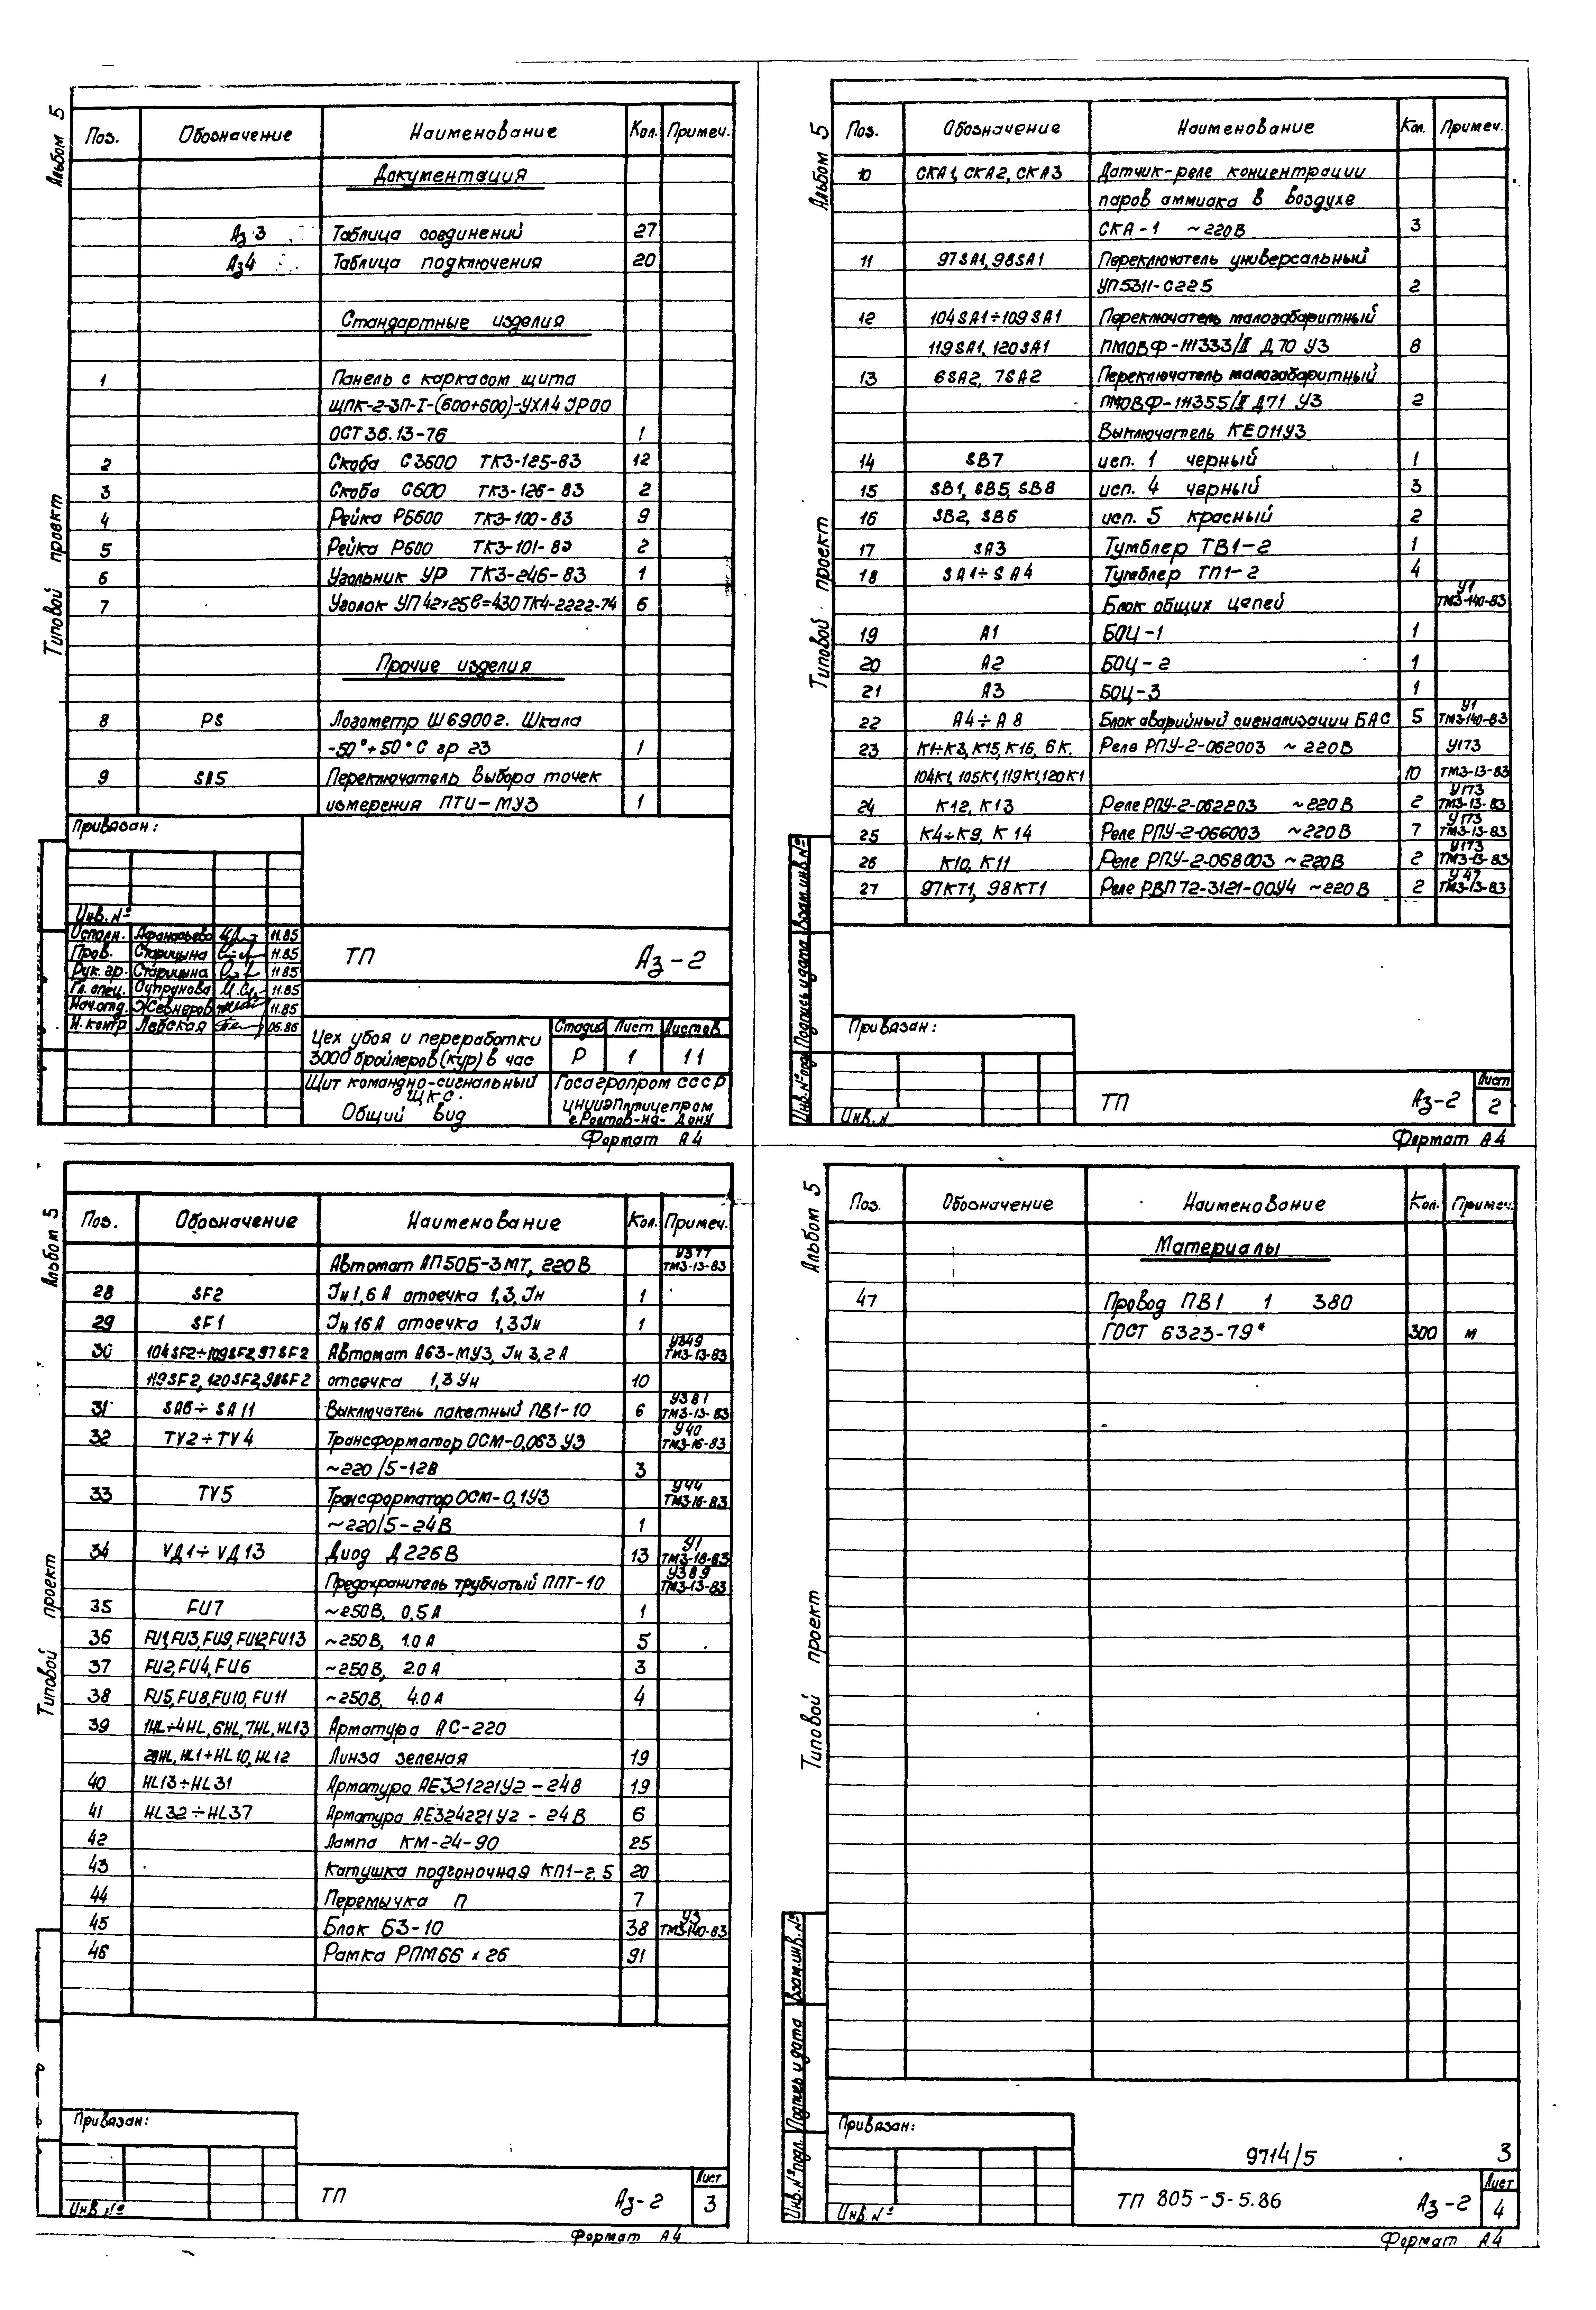 Альбом 5
Типовой проект
Поз. Обозначение Наименование Кол. Примеч.
Документация
Аз 3 Таблица соединений 27
Аз4 Таблица подключения 20
Стандартные изделия
1 Панель с каркасом щита
ЩПК-2-ЗП-I-(600+600)-УХЛ4 IP00
ОСТ 36.13-76 1
2 Скоба С3600 ТК3-125-83 12
3 Скоба С600 ТК3-126-83 2
4 Рейка РБ600 ТК3-100-83 9
5 Рейка Р600 ТК3-101-83 2
6 Угольник УР ТК3-246-83 1
7 Уголок УП 42х25 ℓ=430 ТК4-2222-74 6
Прочие изделия
8 PS Логометр Ш6900г. Шкала
-50°+50°С гр 23 1
9 SA5 Переключатель выбора точек
измерения ПТИ-МУЗ 1
Привязан:
Инв. №
Исполн. Афанасьева 11.85
Пров. Старицына 11.85
Рук. гр. Старицына 11.85
Гл. спец. Супрунова 11.85
Нач.отд. Жевнеров 11.85
Н. контр Левская 06.86
ТП Аз-2
Цех убоя и переработки
3000 бройлеров (кур) в час
Стадия Лист Листов
Р 1 11
Щит командно-сигнальный
ЩКС.
Общий вид
Госагропром СССР
ЦНИИЭПптицепром
г. Ростов-на-Дону
Формат А4
Альбом 5
Типовой проект
Поз. Обозначение Наименование Кол. Примеч.
10 СКА1, СКА2, СКА3 Датчик-реле концентрации
паров аммиака в воздухе
СКА-1 ~220В 3
11 97SA1, 98SA1 Переключатель универсальный
УП5311-С225 2
12 104SA1÷109SA1 Переключатель малогабаритный
119SA1, 120SA1 ПМОВФ-111333/II Д70 У3 8
13 6SA2, 7SA2 Переключатель малогабаритный
ПМОВФ-111355/II Д71 У3 2
Выключатель КЕ011У3
14 SB7 исп. 1 черный 1
15 SB1, SB5, SB8 исп. 4 черный 3
16 SB2, SB6 исп. 5 красный 2
17 SA3 Тумблер ТВ1-2 1
18 SA1÷SA4 Тумблер ТП1-2 4
Блок общих цепей У1 ТМ3-140-83
19 А1 БОЦ-1 1
20 А2 БОЦ-2 1
21 А3 БОЦ-3 1
22 А4÷А8 Блок аварийный сигнализации БАС 5 У1 ТМ3-140-83
23 К1÷К3, К15, К16, 6К, Реле РПУ-2-062003 ~220В У173
104К1, 105К1, 119К1, 120К1 10 ТМ3-13-83
24 К12, К13 Реле РПУ-2-062203 ~220В 2 У173 ТМ3-13-83
25 К4÷К9, К14 Реле РПУ-2-066003 ~220В 7 У173 ТМ3-13-83
26 К10, К11 Реле РПУ-2-068003 ~220В 2 У173 ТМ3-13-83
27 97КТ1, 98КТ1 Реле РВП72-3121-00У4 ~220В 2 У47 ТМ3-13-83
Инв. № подл. Подпись и дата Взам. инв. №
Привязан:
Инв. №
ТП Аз-2
Лист
2
Формат А4
Альбом 5
Типовой проект
Поз. Обозначение Наименование Кол. Примеч.
Автомат АП50Б-3МТ, 220В У377 ТМ3-13-83
28 SF2 Iн 1,6 А отсечка 1,3 Iн 1
29 SF1 Iн 16 А отсечка 1,3 Iн 1
30 104SF2÷109SF2, 97SF2 Автомат А63-МУ3, Iн 3,2 А У349 ТМ3-13-83
119SF2, 120SF2, 98SF2 отсечка 1,3 Ун 10
31 SA6÷SA11 Выключатель пакетный ПВ1-10 6 У381 ТМ3-13-83
32 TV2÷TV4 Трансформатор ОСМ-0,063 У3 У40 ТМ3-16-83
~220/5-12В 3
33 TV5 Трансформатор ОСМ-0,1У3 У44 ТМ3-16-83
~220/5-24В 1
34 VД1÷VД13 Диод Д226В 13 У1 ТМ3-18-83
Предохранитель трубчатый ППТ-10 У389 ТМ3-13-83
35 FU7 ~250В, 0.5А 1
36 FU1, FU3, FU9, FU12, FU13 ~250В, 1.0А 5
37 FU2, FU4, FU6 ~250В, 2.0А 3
38 FU5, FU8, FU10, FU11 ~250В, 4.0А 4
39 1HL÷4HL, 6HL, 7HL, HL13 Арматура АС-220
20HL, HL1÷HL10, HL12 Линза зеленая 19
40 HL13÷HL31 Арматура АЕ321221У2-24В 19
41 HL32÷HL37 Арматура АЕ324221У2-24В 6
42 Лампа КМ-24-90 25
43 Катушка подгоночная КП1-2,5 20
44 Перемычка П 7
45 Блок БЗ-10 38 У3 ТМ3-140-83
46 Рамка РПМ66х26 91
Привязан:
Инв №
ТП Аз-2
Лист
3
Формат А4
Альбом 5
Типовой проект
Поз. Обозначение Наименование Кол. Примеч.
Материалы
47 Провод ПВ1 1 380
ГОСТ 6323-79* 300 м
Инв. № подл. Подпись и дата Взам. инв. №
Привязан:
Инв. №
9714/5 3
ТП 805-5-5.86 Аз-2
Лист
4
Формат А4